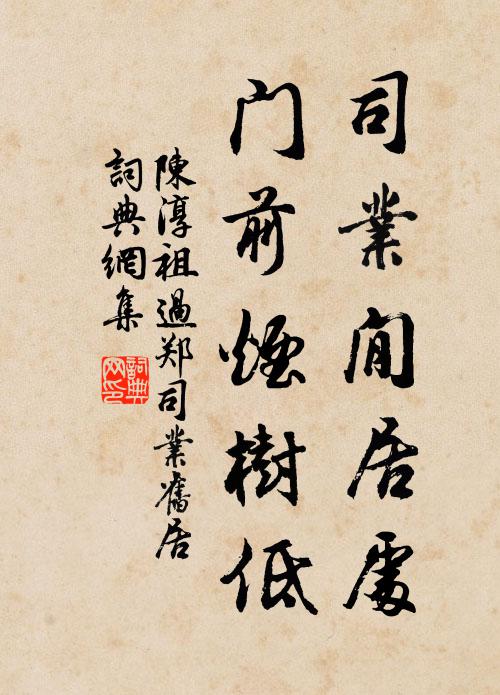 司業閒居處
门前煙樹低
陳淳祖過郑司業舊居
詞典網集
詞典网印